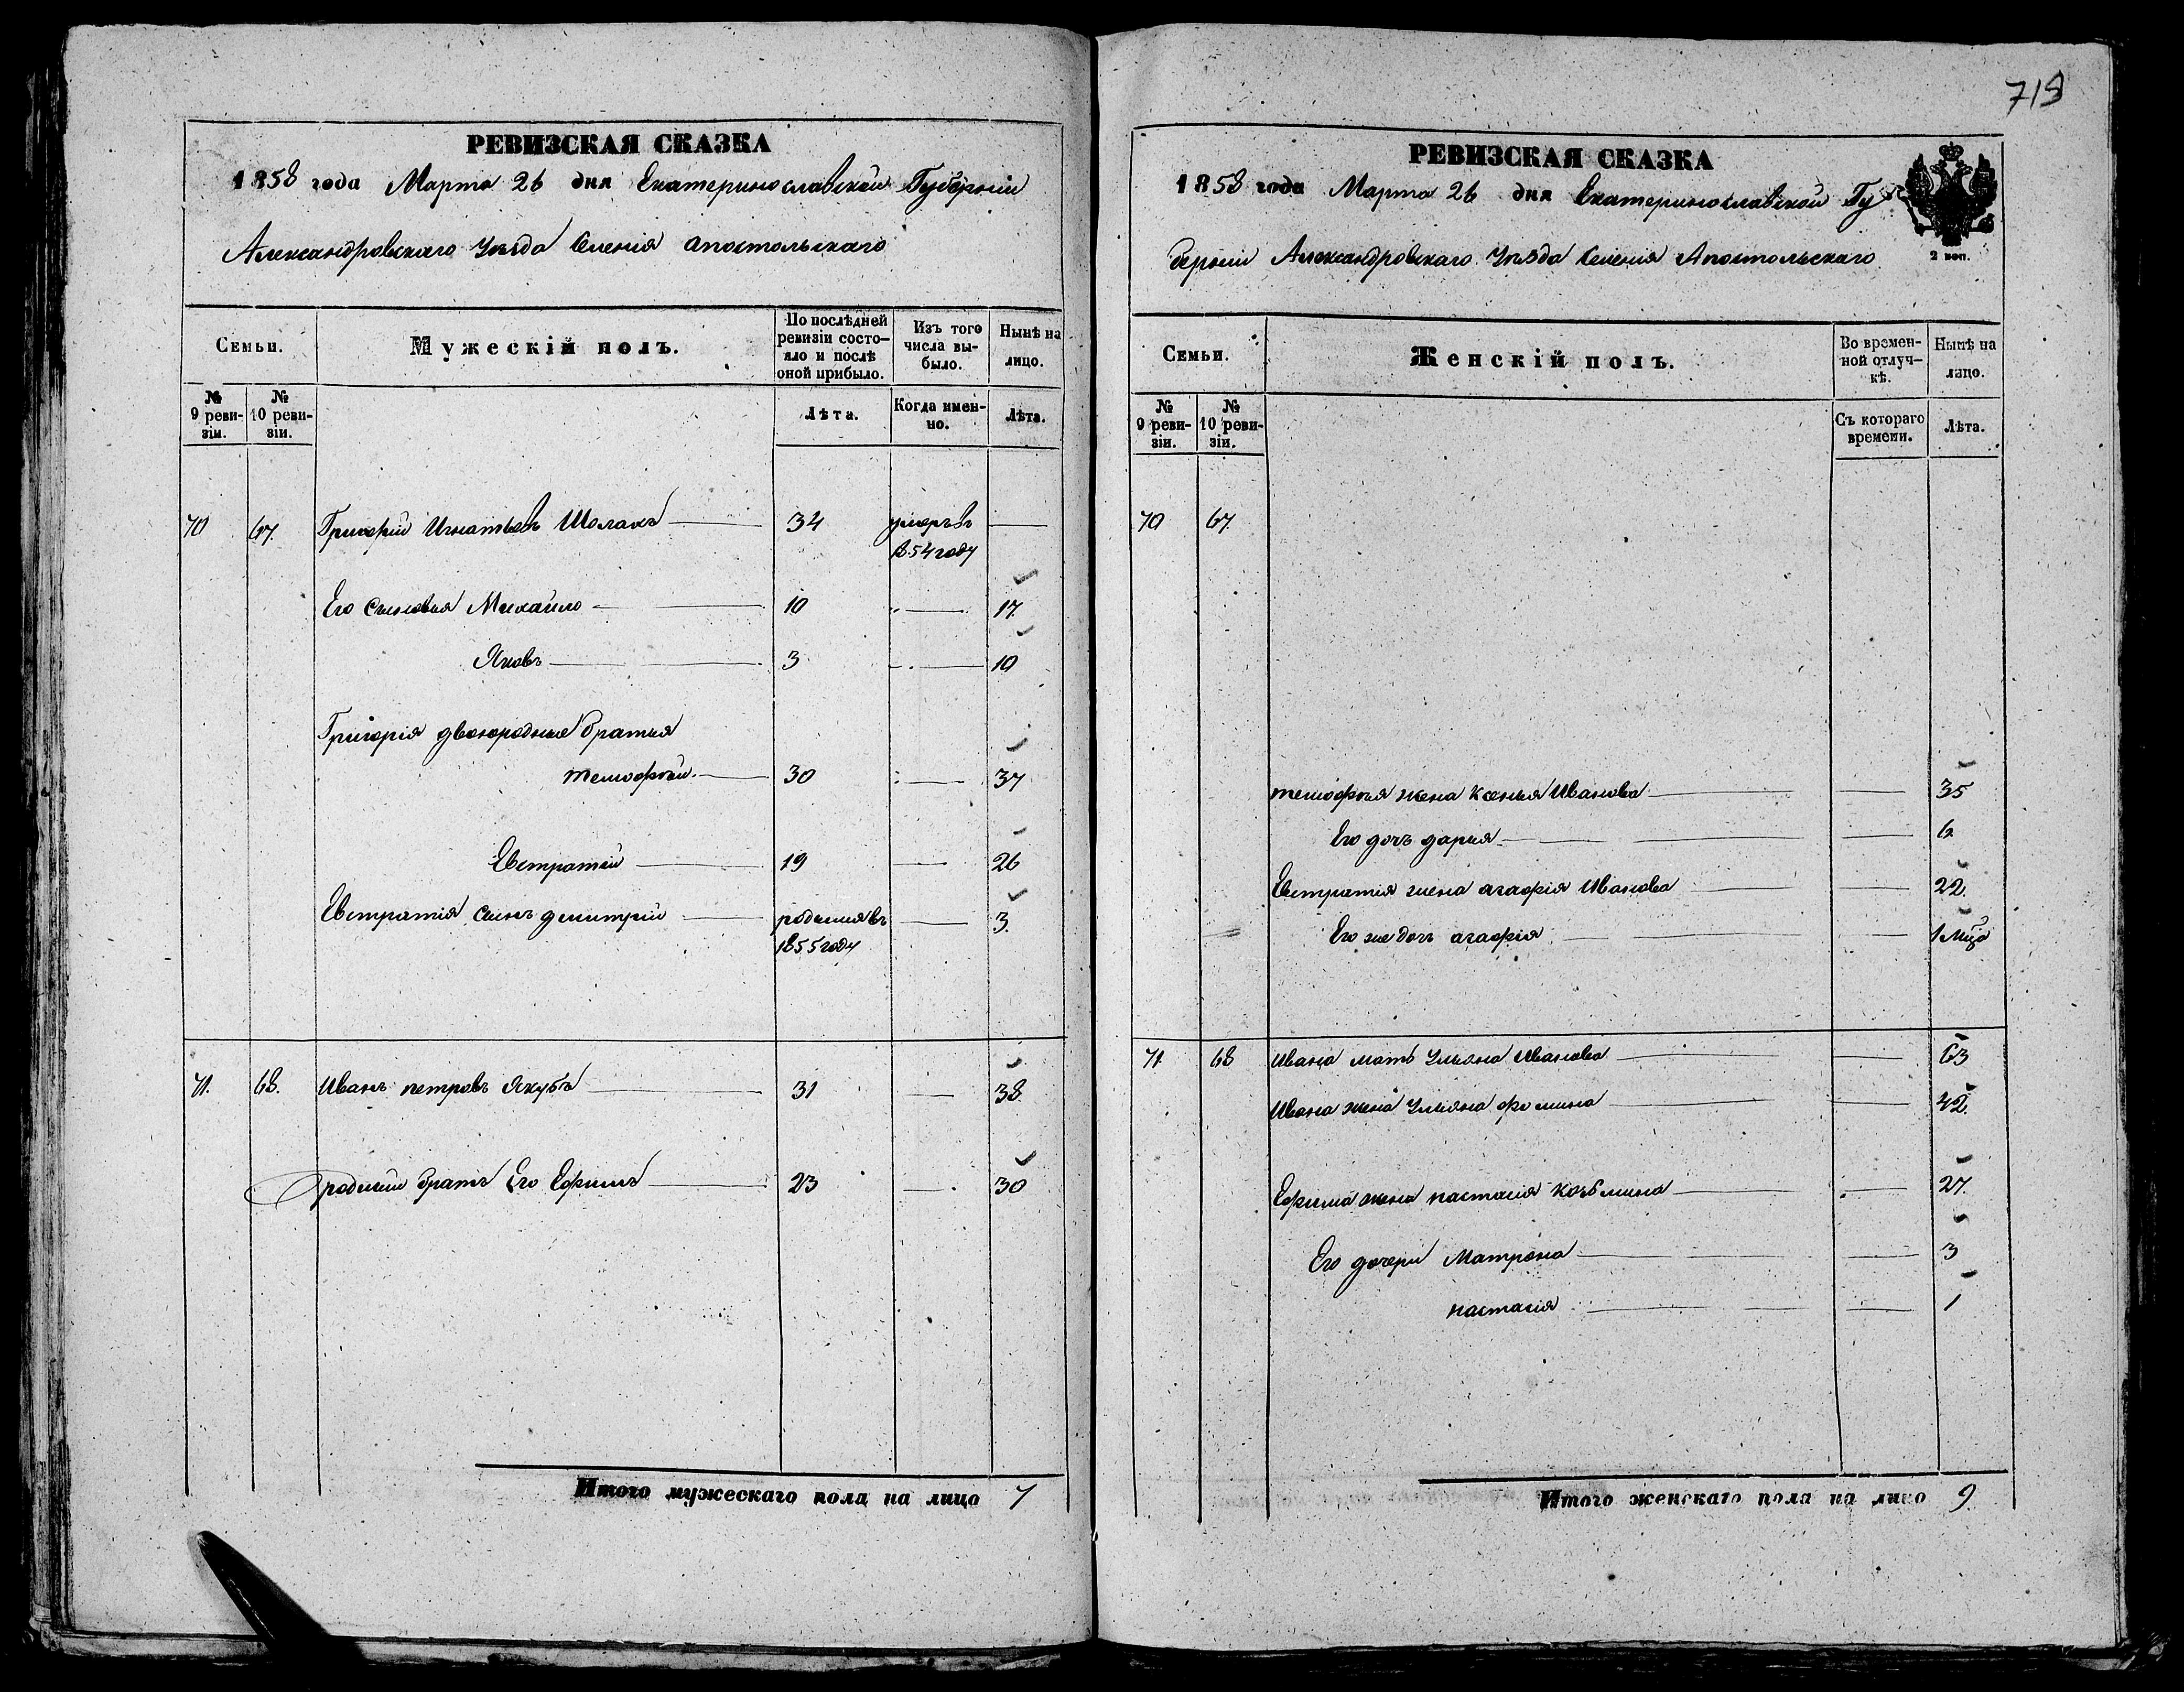 РЕВИЗСКАЯ СКАЗКА
1858 года Марта 26 дня Екатеринославской Губерніи
Александровскаго Уезда Селенія апостольскаго
Семьи.
Мужескій полъ.
По послѣдней ревизіи состо-
яло и послѣ
оной прибыло.
Изъ того
числа вы-
было.
Нынѣ на
лицо.
№
9 реви-
зіи.
№
10 реви-
зіи.
Лѣта.
Когда имен-
но.
Лѣта.
70 67. Григорій Игнатьевъ Шолахъ 34 умеръ въ
1854 году
Его сыновья Михайло 10 17.
Яковъ 3 10
Григорія двоюродные братья
тимофей 30 37
Евстратій 19 26
Евстратія сынъ дмитрій родился въ 3.
1855 году
71. 68. Иванъ петровъ Якубъ 31 38.
родный братъ Его Ефимъ 23 30
Итого мужескаго пола на лицо 7
719
РЕВИЗСКАЯ СКАЗКА
1858 года Марта 26 дня Екатеринославской Гу
берніи Александровскаго Уезда Селенія Апостольскаго
2 коп.
Семьи.
Женскій полъ.
Во времен-
ной отлуч-
кѣ.
Нынѣ на
лицо.
№
9 реви-
зіи.
№
10 реви-
зіи.
Съ котораго
времени.
Лѣта.
70 67.
тимофея жена Ксенья Иванова 35
Его дочь дарья 6
Евстратія жена агафія Иванова 22.
Его же дочь агафія 1 мца
71 68 Ивана мать Ульяна Иванова 63
Ивана жена Ульяна фомина 42.
Ефима жена настасія козьмина 27.
Его дочери Матрона 3
настасія 1
Итого женскаго пола на лицо 9